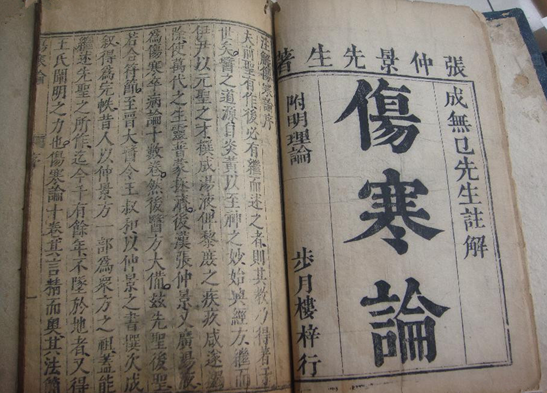 張仲景先生著
成無已先生註解
傷寒論
附明理論
步月樓梓行
注解傷寒論序
夫前聖有作後必有繼而述之者則其教乃得著于
世矣醫之道源自炎黃以至神之妙始興經方繼而
伊尹以元聖之才撰成湯液俾黎庶之疾疢咸遂
除使萬代之生靈普蒙拯濟後漢張仲景又廣湯液
為傷寒卒病論十數卷然後醫方大備茲先聖後聖
若合符節至晉太醫令王叔和以仲景之書撰次成
敘得為完帙昔人以仲景方一部為眾方之祖蓋能
繼述先聖之所作迄今千有餘年不墜於地者又得
王氏闡明之力也傷寒論十卷其言精而奧其法簡